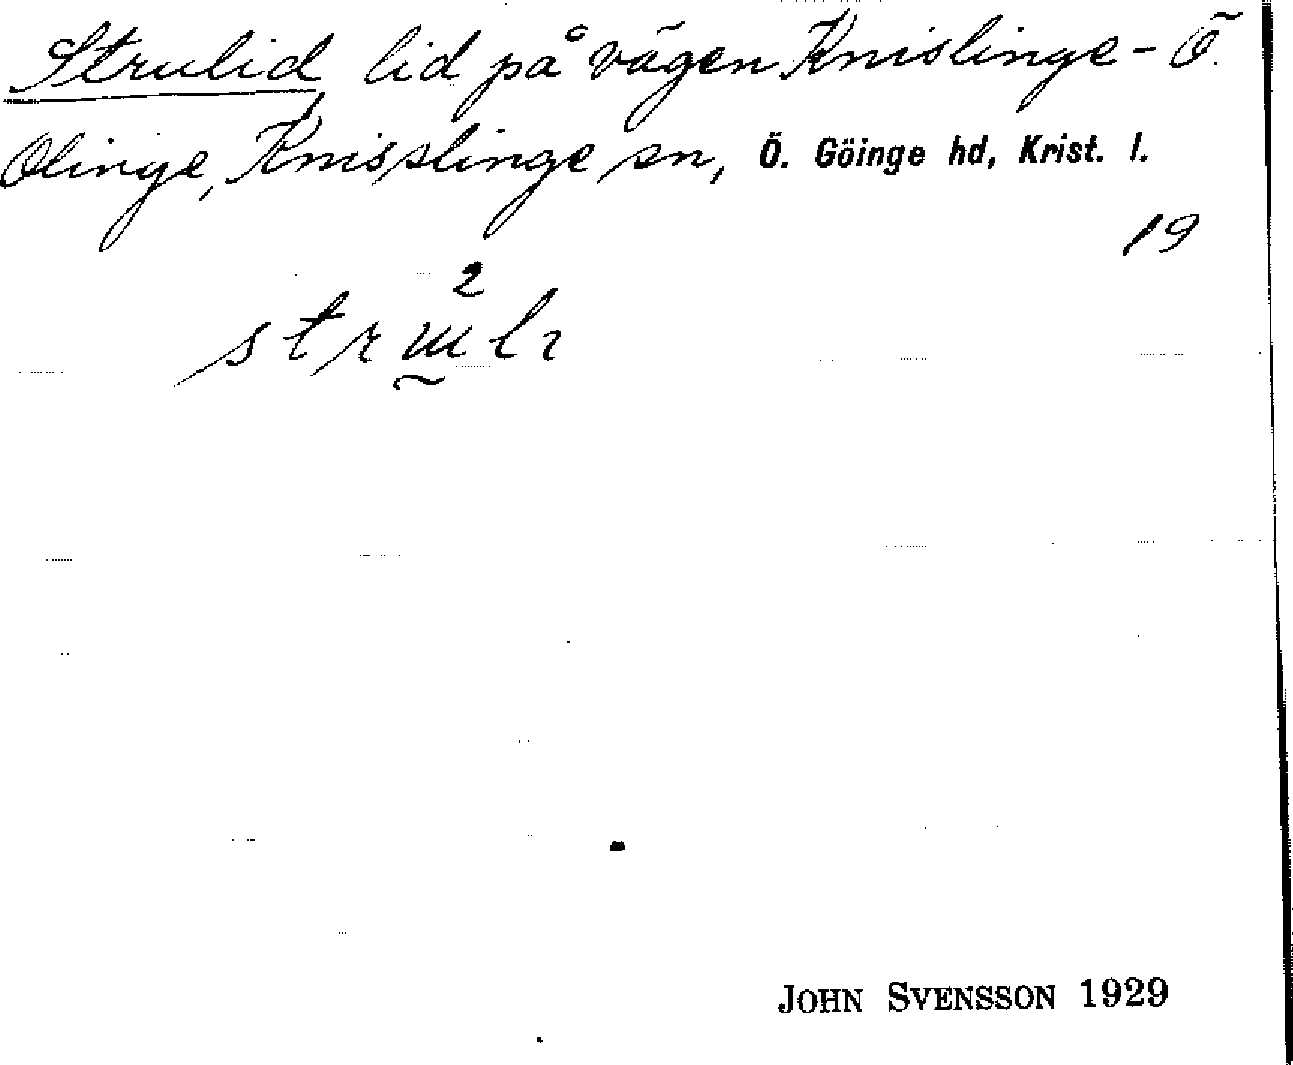 Strulid lid på vägen Knislinge - Ö.
Olinge, Knisslinge sn, Ö. Göinge hd, Krist. l.
19
2
JOHN SVENSSON 1929